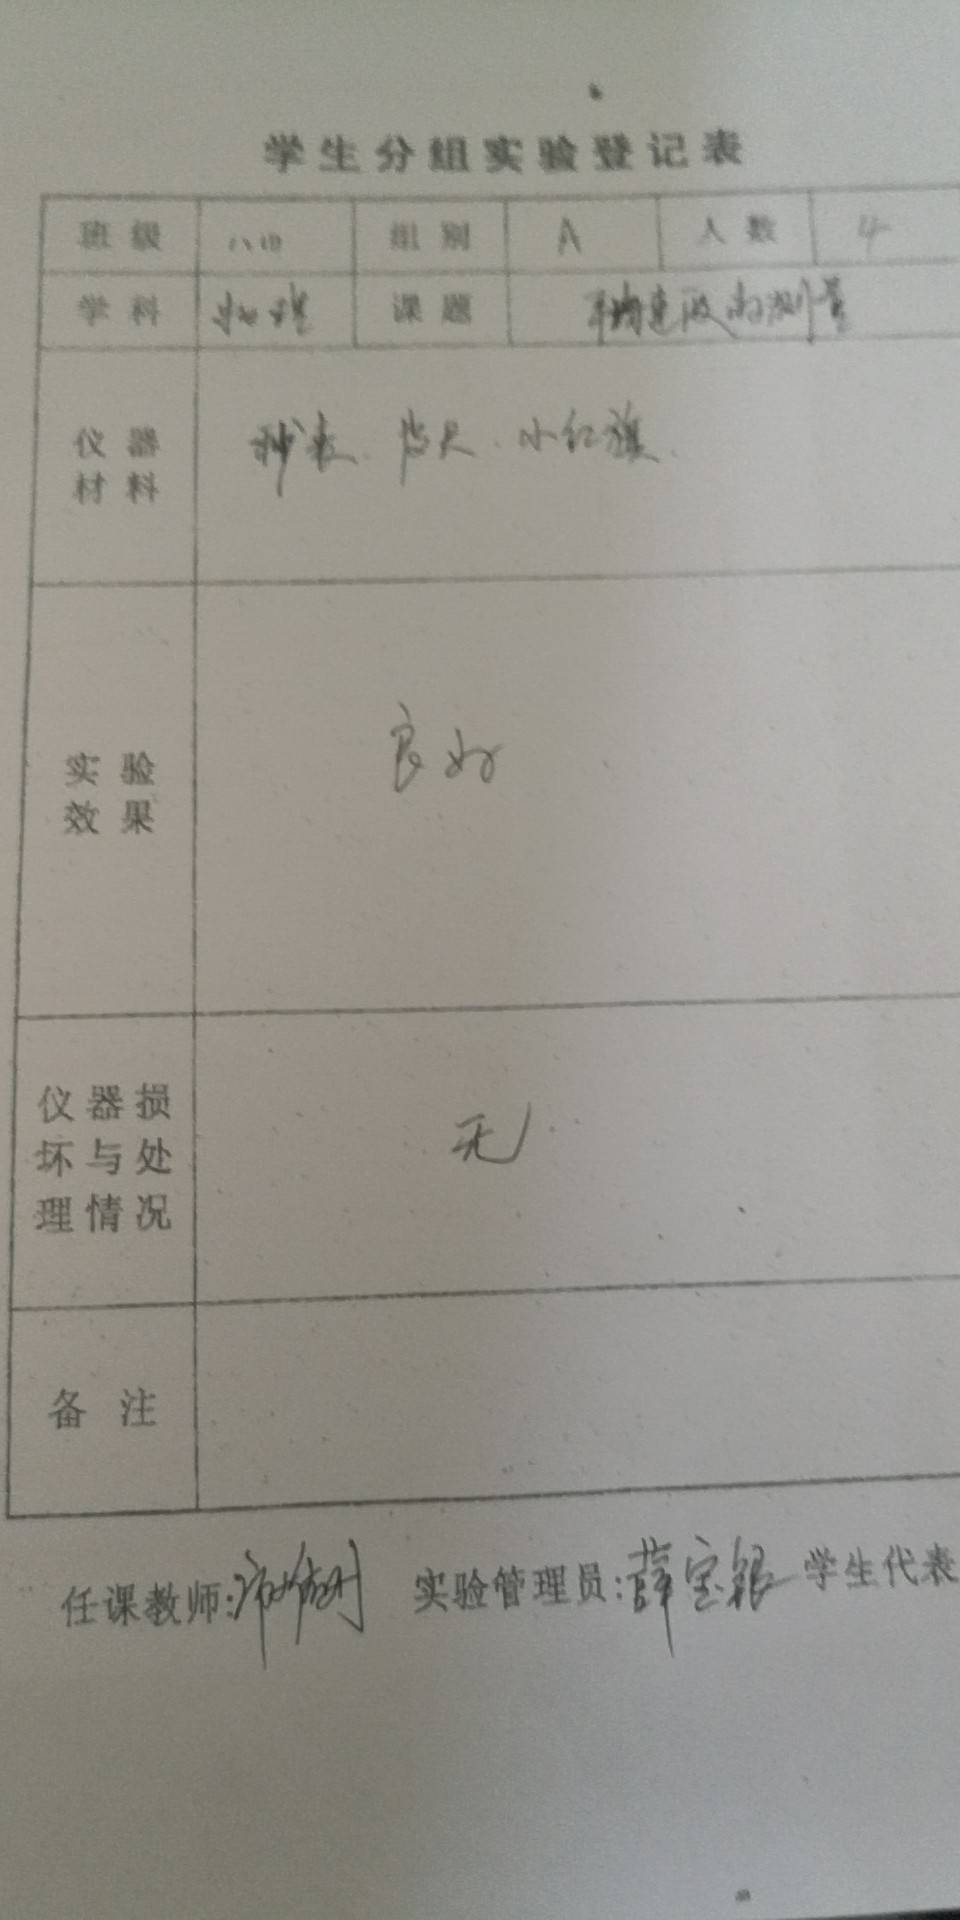 学生分组实验登记表
班级 八四 组别 A 人数 4
学科 物理 课题 平均速度的测量
仪器
材料
秒表、卷尺、小红旗
实验
效果
良好
仪器损
坏与处
理情况
无
备注
任课教师: 实验管理员:薛宝银 学生代表